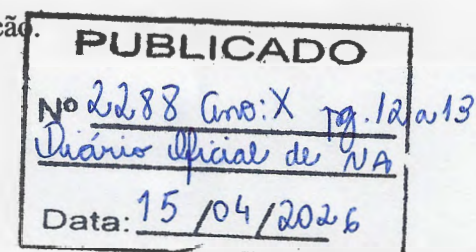 ção.
PUBLICADO
Nº 2288 Ano: X pg. 12 a 13
Diário Oficial de NA
Data: 15 /04/2026